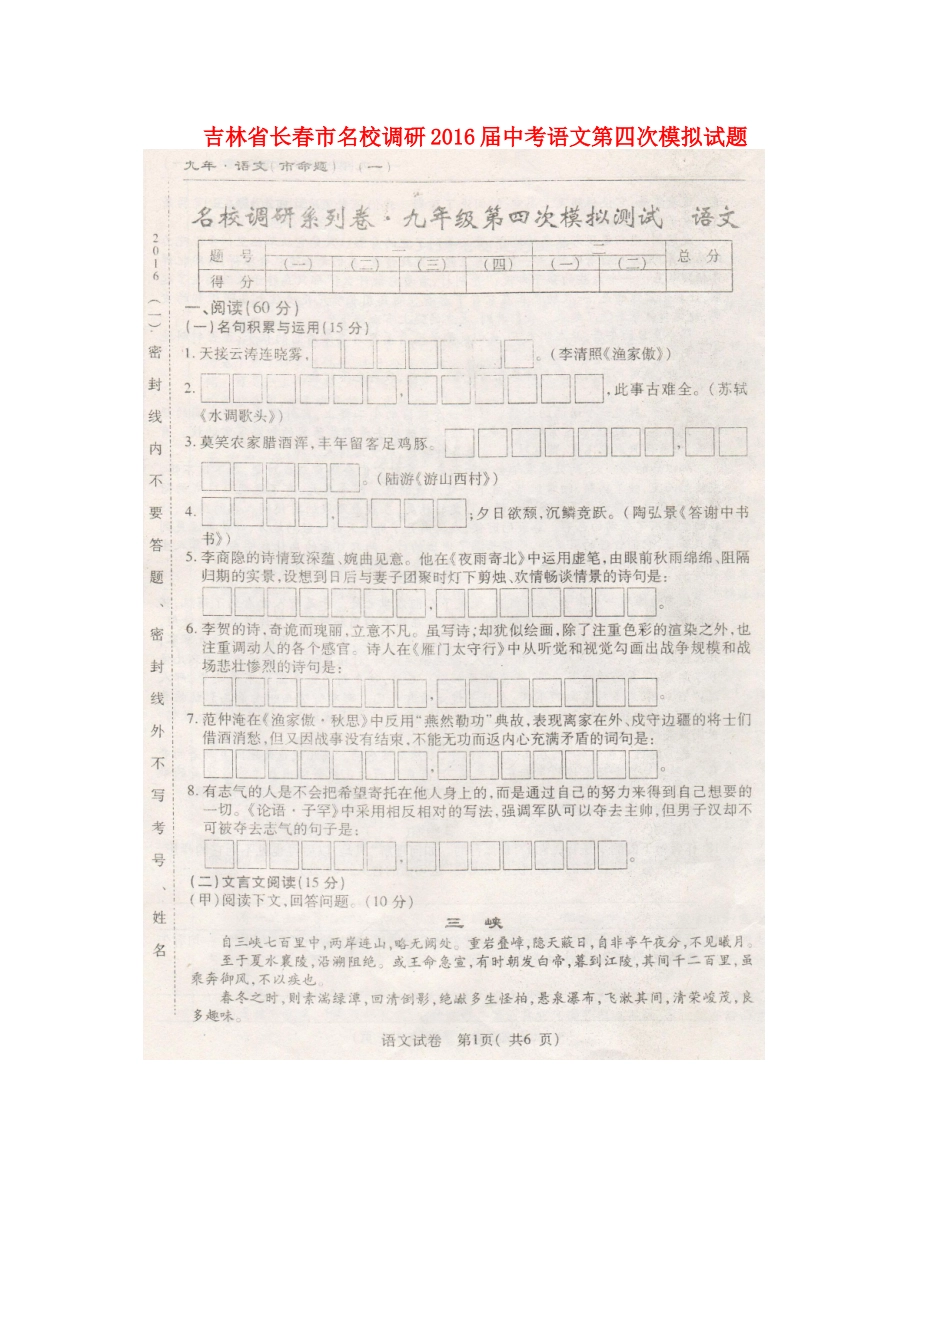 吉林省长春市名校调研2016届中考语文第四次模拟试题
九年·语文(市命题) (一)
名校调研系列卷·九年级第四次模拟测试 语文
题 号 一 二 总 分
(一) (二) (三) (四) (一) (二)
得 分
2016(一)密封线内不要答题、密封线外不写考号、姓名
一、阅读(60分)
(一)名句积累与运用(15分)
1.天接云涛连晓雾, 。(李清照《渔家傲》)
2. , ,此事古难全。(苏轼
《水调歌头》)
3.莫笑农家腊酒浑,丰年留客足鸡豚。 ,
。(陆游《游山西村》)
4. , ;夕日欲颓,沉鳞竞跃。(陶弘景《答谢中书
书》)
5.李商隐的诗情致深蕴、婉曲见意。他在《夜雨寄北》中运用虚笔,由眼前秋雨绵绵、阻隔
归期的实景,设想到日后与妻子团聚时灯下剪烛、欢情畅谈情景的诗句是:
, 。
6.李贺的诗,奇诡而瑰丽,立意不凡。虽写诗;却犹似绘画,除了注重色彩的渲染之外,也
注重调动人的各个感官。诗人在《雁门太守行》中从听觉和视觉勾画出战争规模和战
场悲壮惨烈的诗句是:
, 。
7.范仲淹在《渔家傲·秋思》中反用“燕然勒功”典故,表现离家在外、戍守边疆的将士们
借酒消愁,但又因战事没有结束,不能无功而返内心充满矛盾的词句是:
, 。
8.有志气的人是不会把希望寄托在他人身上的,而是通过自己的努力来得到自己想要的
一切。《论语·子罕》中采用相反相对的写法,强调军队可以夺去主帅,但男子汉却不
可被夺去志气的句子是:
, 。
(二)文言文阅读(15分)
(甲)阅读下文,回答问题。(10分)
三 峡
自三峡七百里中,两岸连山,略无阙处。重岩叠嶂,隐天蔽日,自非亭午夜分,不见曦月。
至于夏水襄陵,沿溯阻绝。或王命急宣,有时朝发白帝,暮到江陵,其间千二百里,虽
乘奔御风,不以疾也。
春冬之时,则素湍绿潭,回清倒影,绝巘多生怪柏,悬泉瀑布,飞漱其间,清荣峻茂,良
多趣味。
语文试卷 第1页( 共6 页)